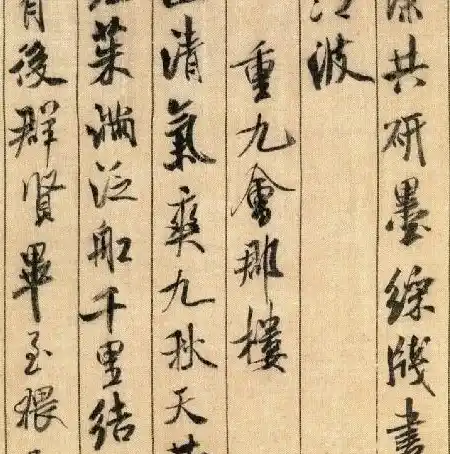 共研墨綵牋書
波
重九會郡樓
清氣爽九秋天
茱滿泛船千里結
後群賢畢至猥